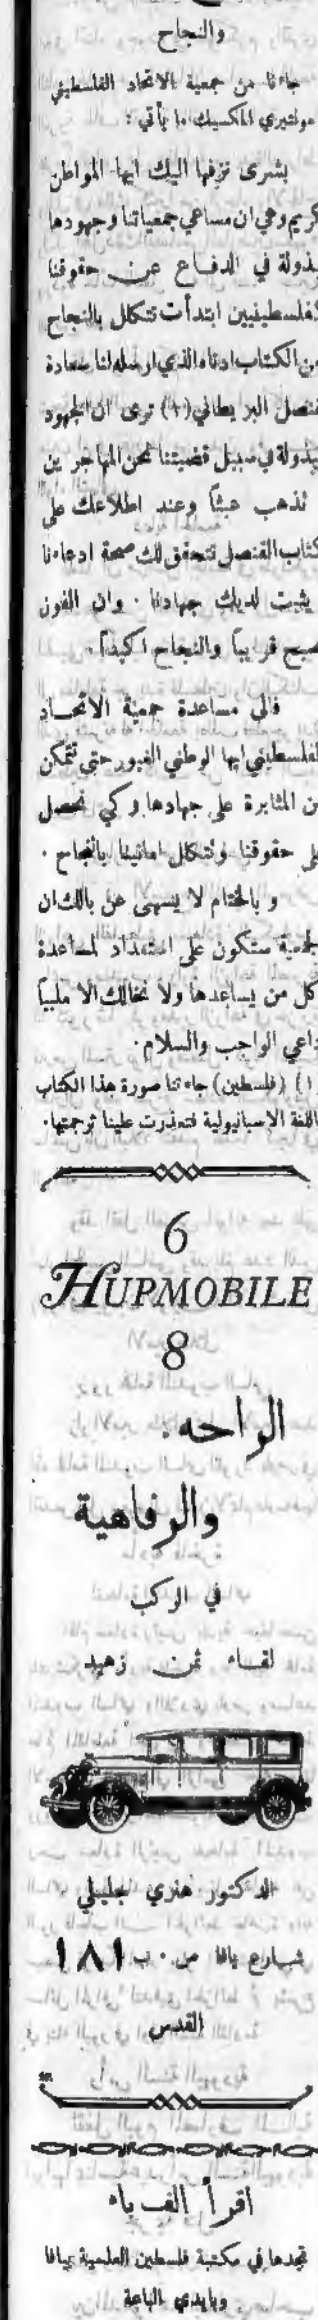 والنجاح
جاءنا من جمعية الاتحاد الفلسطيني
مونتيري المكسيك ما يأتي :
بشرى نزفها اليك ايها المواطن
كريم وهي ان مساعي جمعياتنا وجهودها
بذولة في الدفاع عن حقوقنا
لفلسطينيين ابتدأت تتكلل بالنجاح
من الكتاب ادناه الذي ارسله لنا سعادة
قنصل البريطاني (١) ترى ان الجهود
بذولة في سبيل قضيتنا نحن المهاجرين
تذهب عبثاً وعند اطلاعك على
كتاب القنصل تتحقق لك صحة ادعاءنا
يثبت لديك جهادنا . وان الفوز
صبح قريباً والنجاح اكيداً .
فالى مساعدة جمعية الاتحاد
لفلسطيني ايها الوطني الغيور حتى تتمكن
من المثابرة على جهادها وكي نحصل
على حقوقنا وتتكلل امانينا بالنجاح .
و بالختام لا يسهى عن بالك ان
لجمعية ستكون على استعداد لمساعدة
كل من يساعدها ولا نخالك الا ملبياً
داعي الواجب والسلام .
(١) (فلسطين) جاءتنا صورة هذا الكتاب
باللغة الاسبانيولية فتعذرت علينا ترجمتها .
6
HUPMOBILE
8
الراحه
والرفاهية
في الركب
لقاء ثمن زهيد
الدكتور هنري جليلي
شارع يافا ص . ب ١٨١
القدس
اقرأ الف باء
تجدها في مكتبة فلسطين العلمية بيافا
وبايدي الباعة